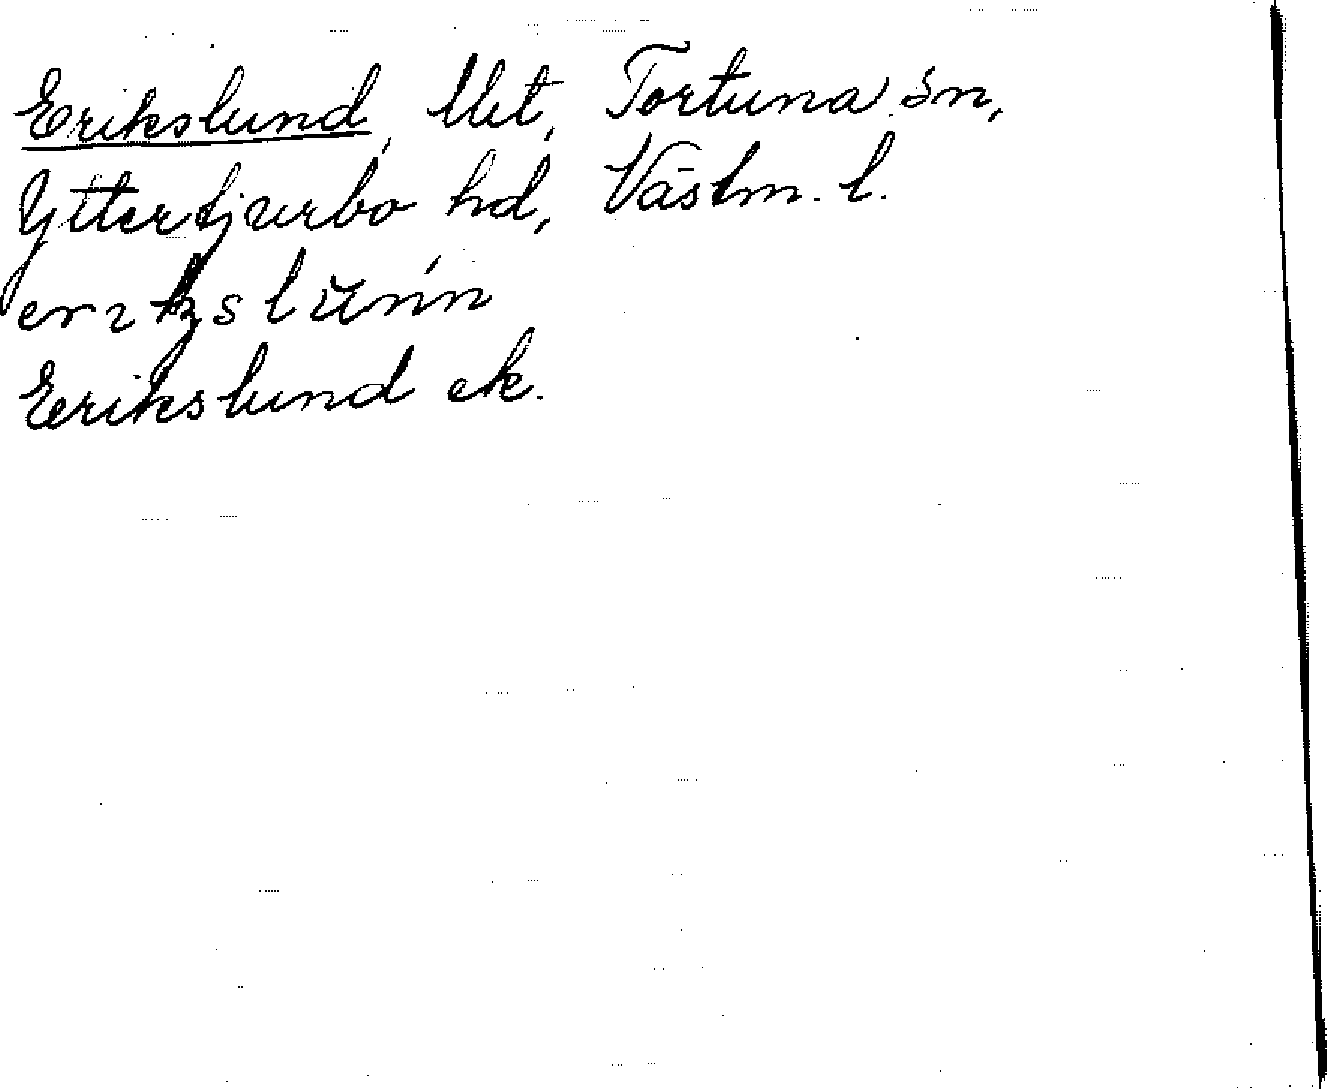 Erikslund, Ut, Tortuna sn,
Yttertjurbo hd, Västm. l.
Erikslund ek.